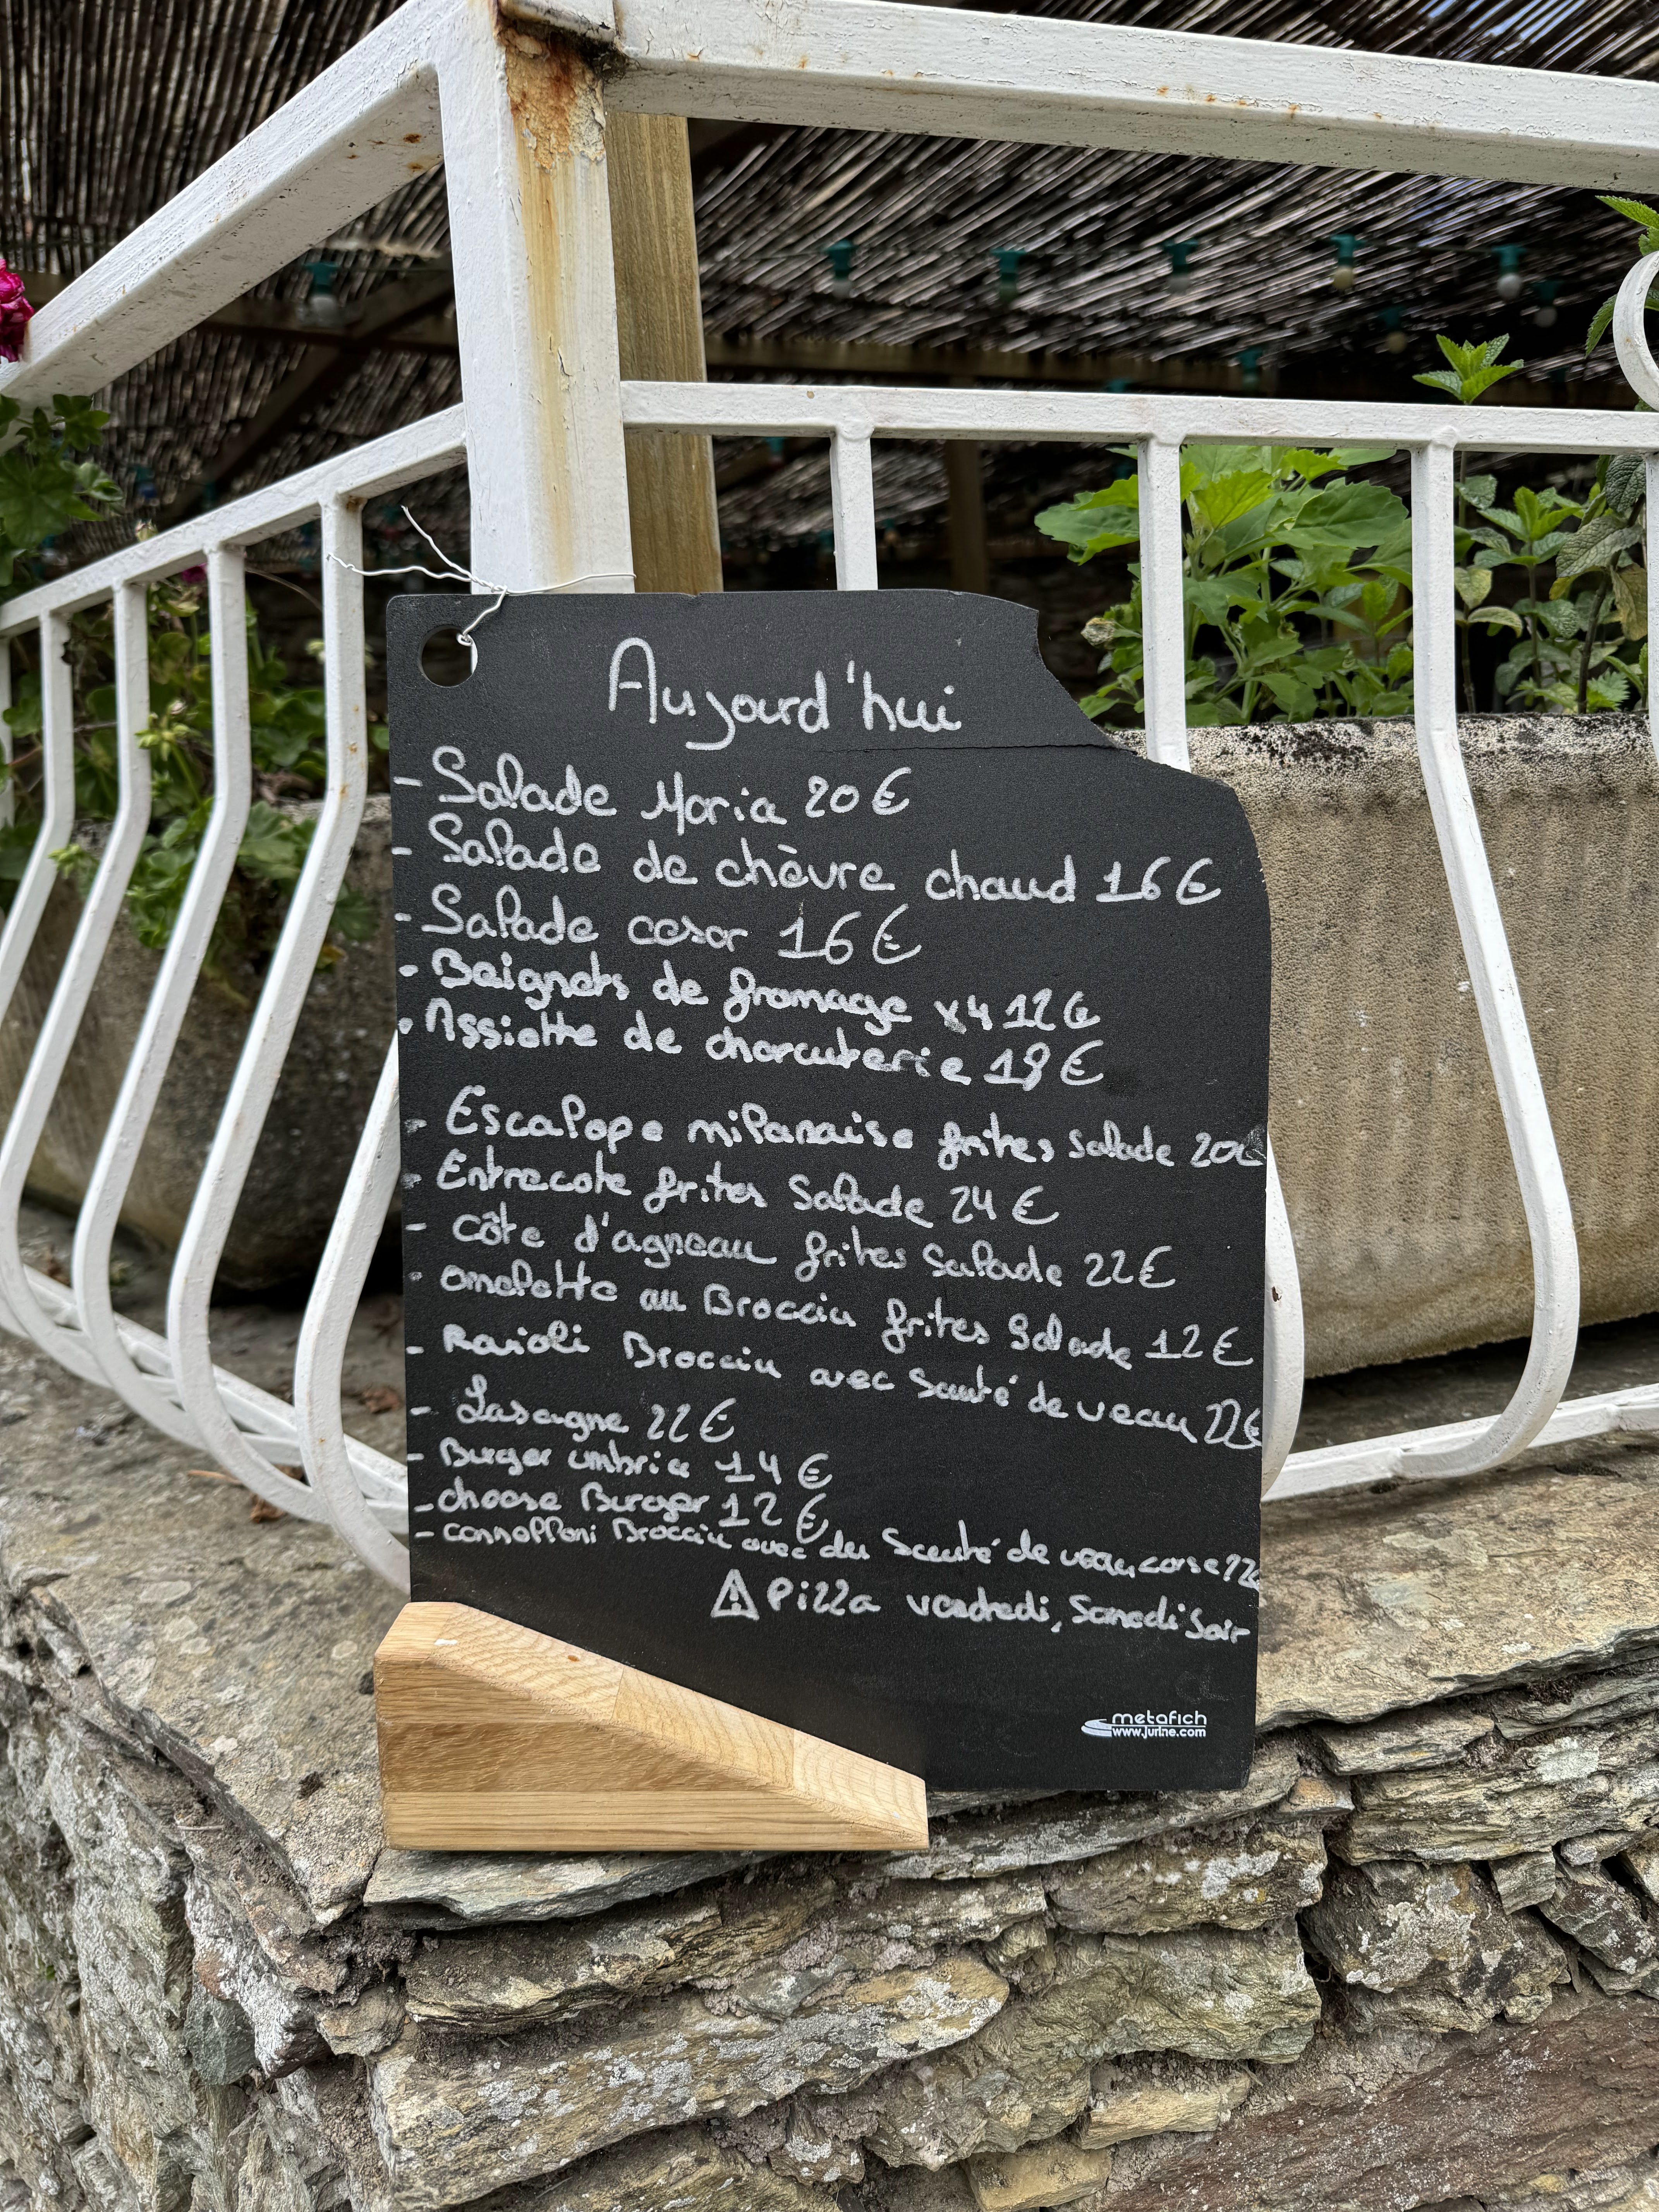 Aujourd'hui
- Salade Maria 20€
- Salade de chèvre chaud 16€
- Salade cesar 16€
- Beignets de fromage x4 12€
- Assiette de charcuterie 18€
- Escalope milanaise frites salade 20€
- Entrecote frites Salade 24€
- côte d'agneau frites Salade 22€
- omelette au Brocciu frites Salade 12€
- Ravioli Brocciu avec Sauté de veau 22€
- Lasagne 22€
- Burger umbria 14€
- cheese Burger 12€
- cannelloni Brocciu avec du Sauté de veau corse 22€
⚠ Pizza vendredi, Samedi Soir
metafich
www.jurine.com